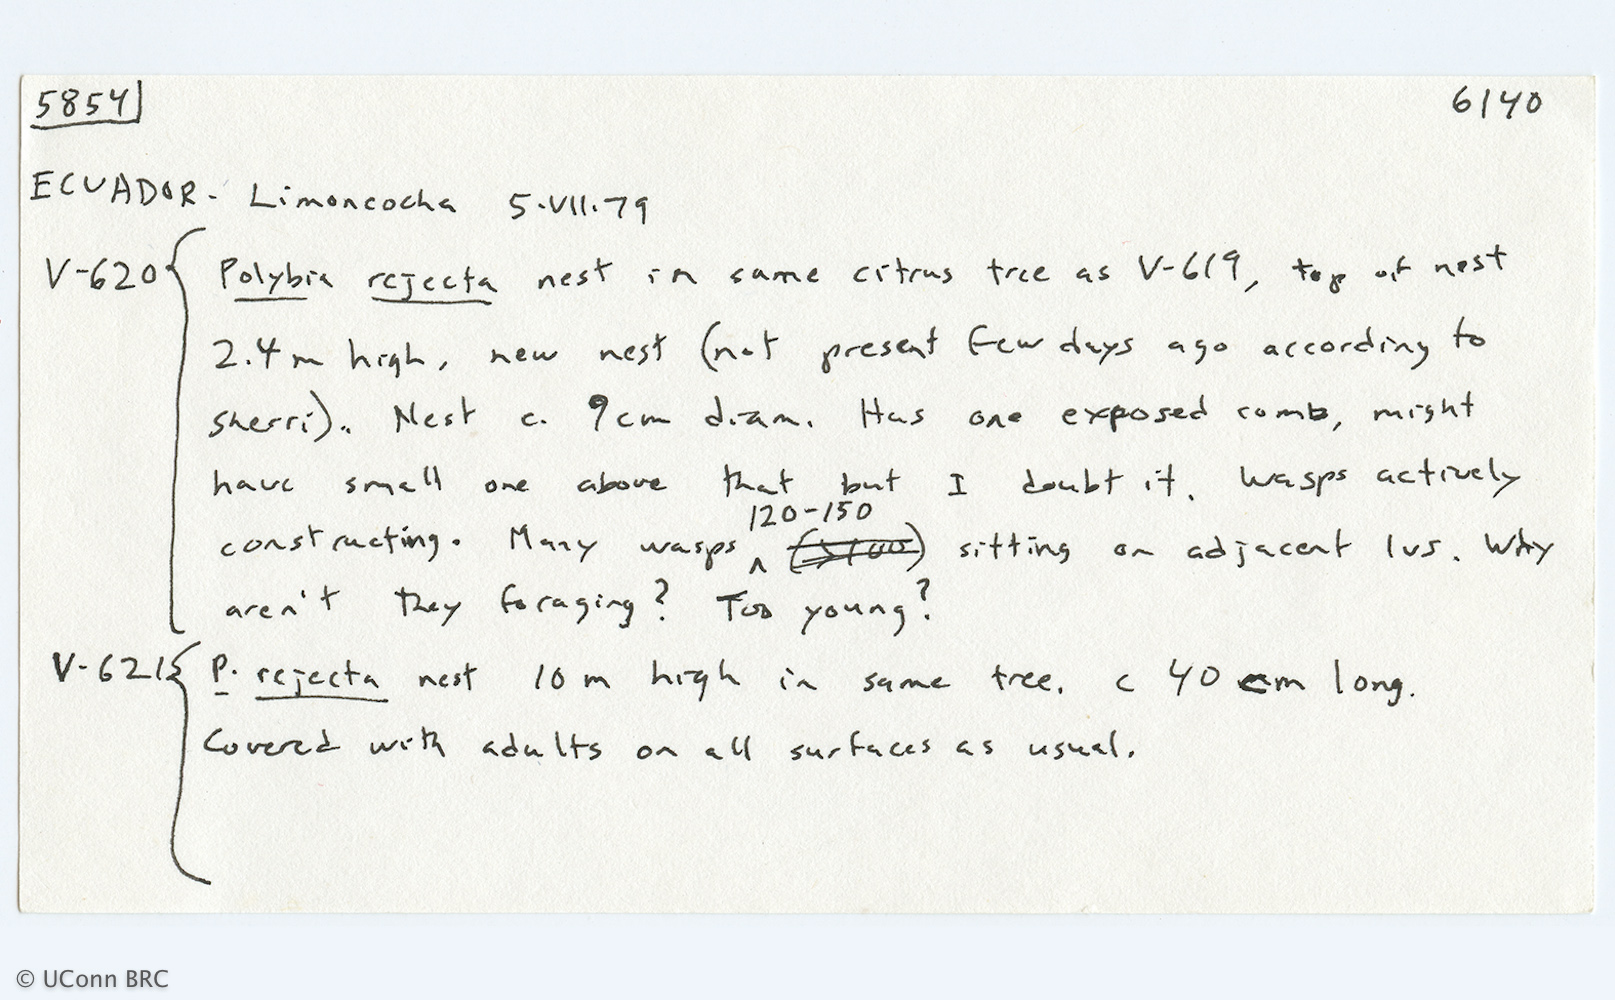 5854 6140
ECUADOR- Limoncocha 5.VII.79
V-620 Polybia rejecta nest in same citrus tree as V-619, top of nest
2.4m high, new nest (not present few days ago according to
Sherri). Nest c. 9cm diam. Has one exposed comb, might
have small one above that but I doubt it. Wasps actively
120-150
constructing. Many wasps ^ sitting on adjacent lvs. Why
aren't they foraging? Too young?
V-621 P. rejecta nest 10m high in same tree. c 40 cm long.
Covered with adults on all surfaces as usual.
© UConn BRC